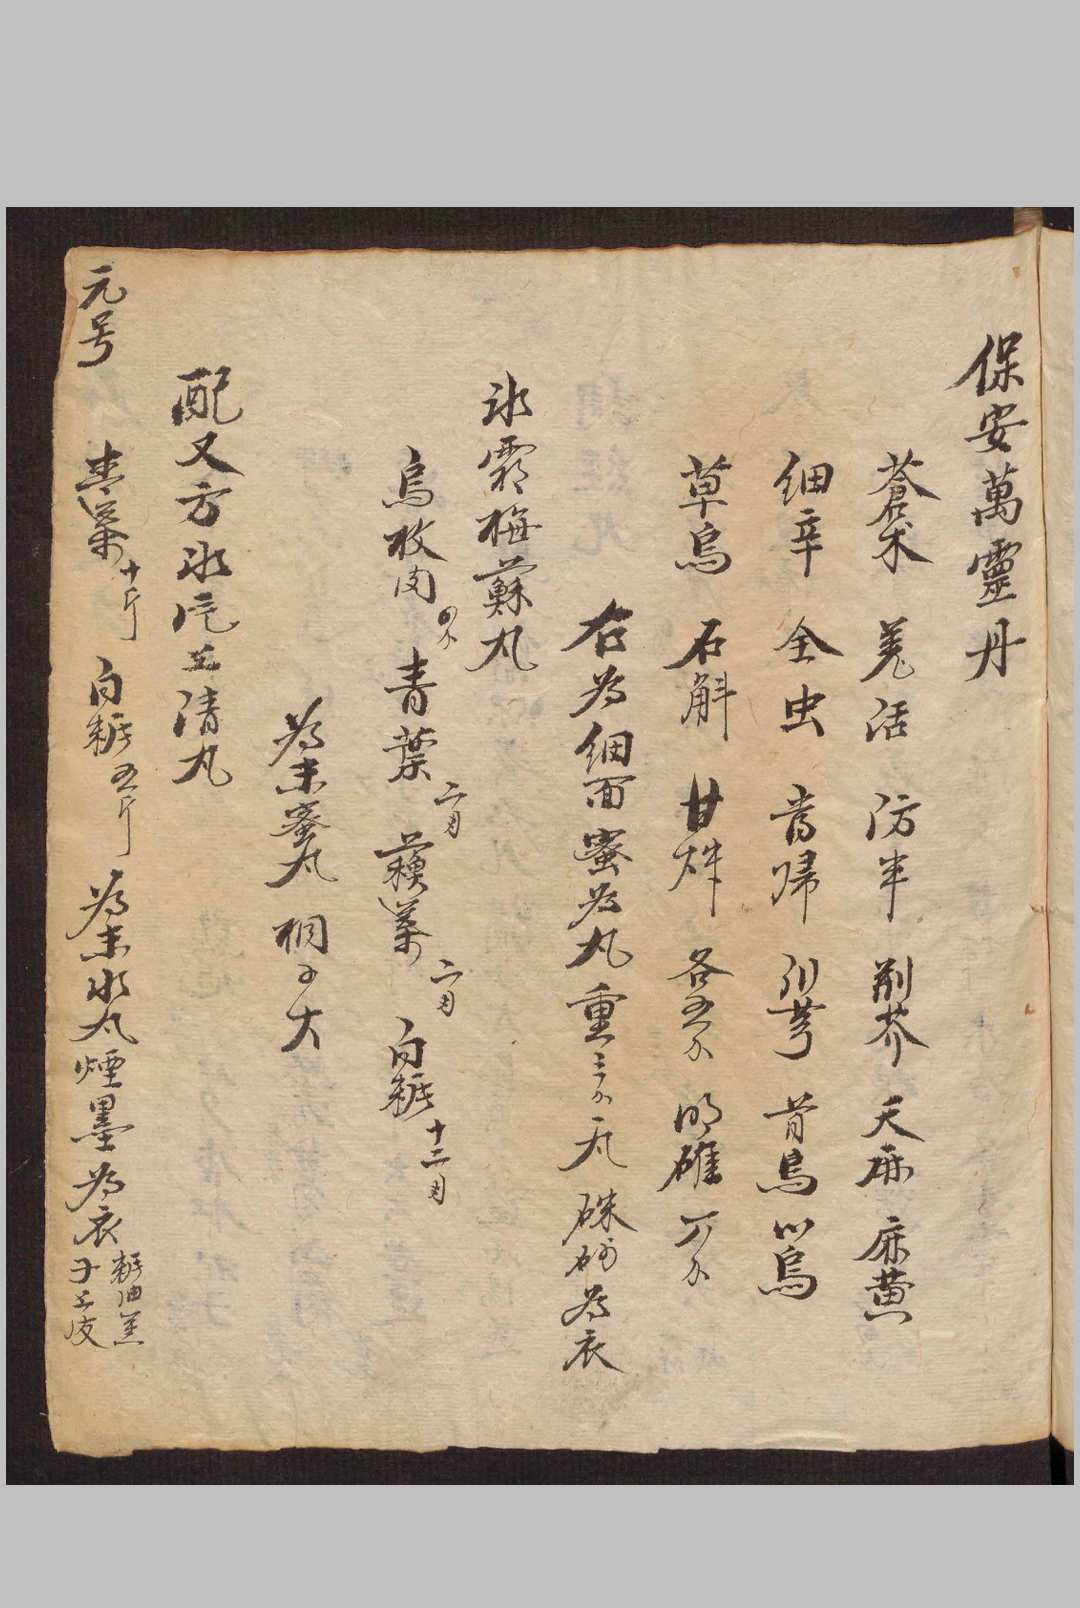 保安萬靈丹
蒼朮 羌活 防丰 荊芥 天麻 麻黄
细辛 全虫 當归 川芎 首烏 川烏
草烏 石斛 甘艸 各五分 明碓 六分
右為细面蜜為丸重三分一丸硃砂為衣
氷霜梅蘇丸
烏枚肉 四分 青葉 二両 蘓葉 二両 白糖 十二両
為末蜜丸 桐子大
配又方氷片上清丸
元号 青葉 十斤 白糖 五斤 為末水丸煙墨為衣